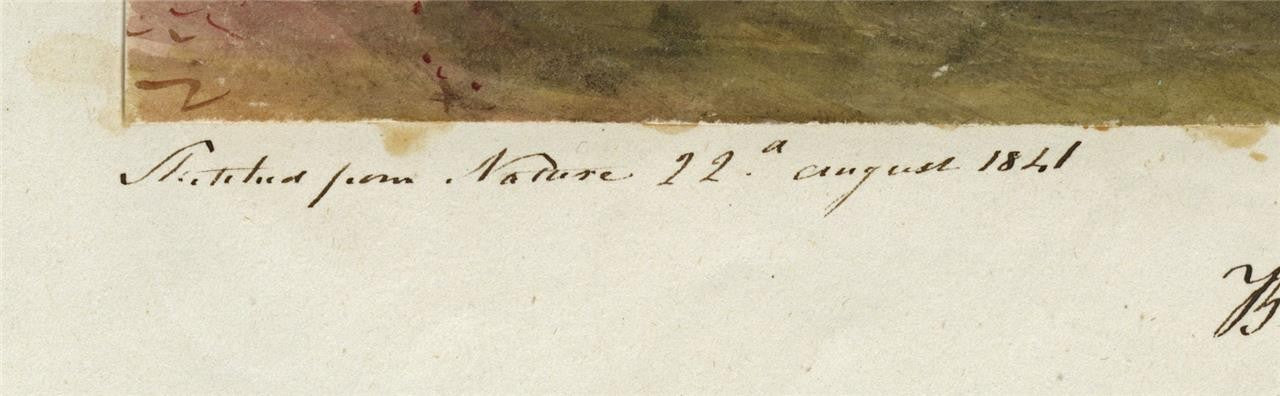 Sketched from Nature 22.d august 1841
B